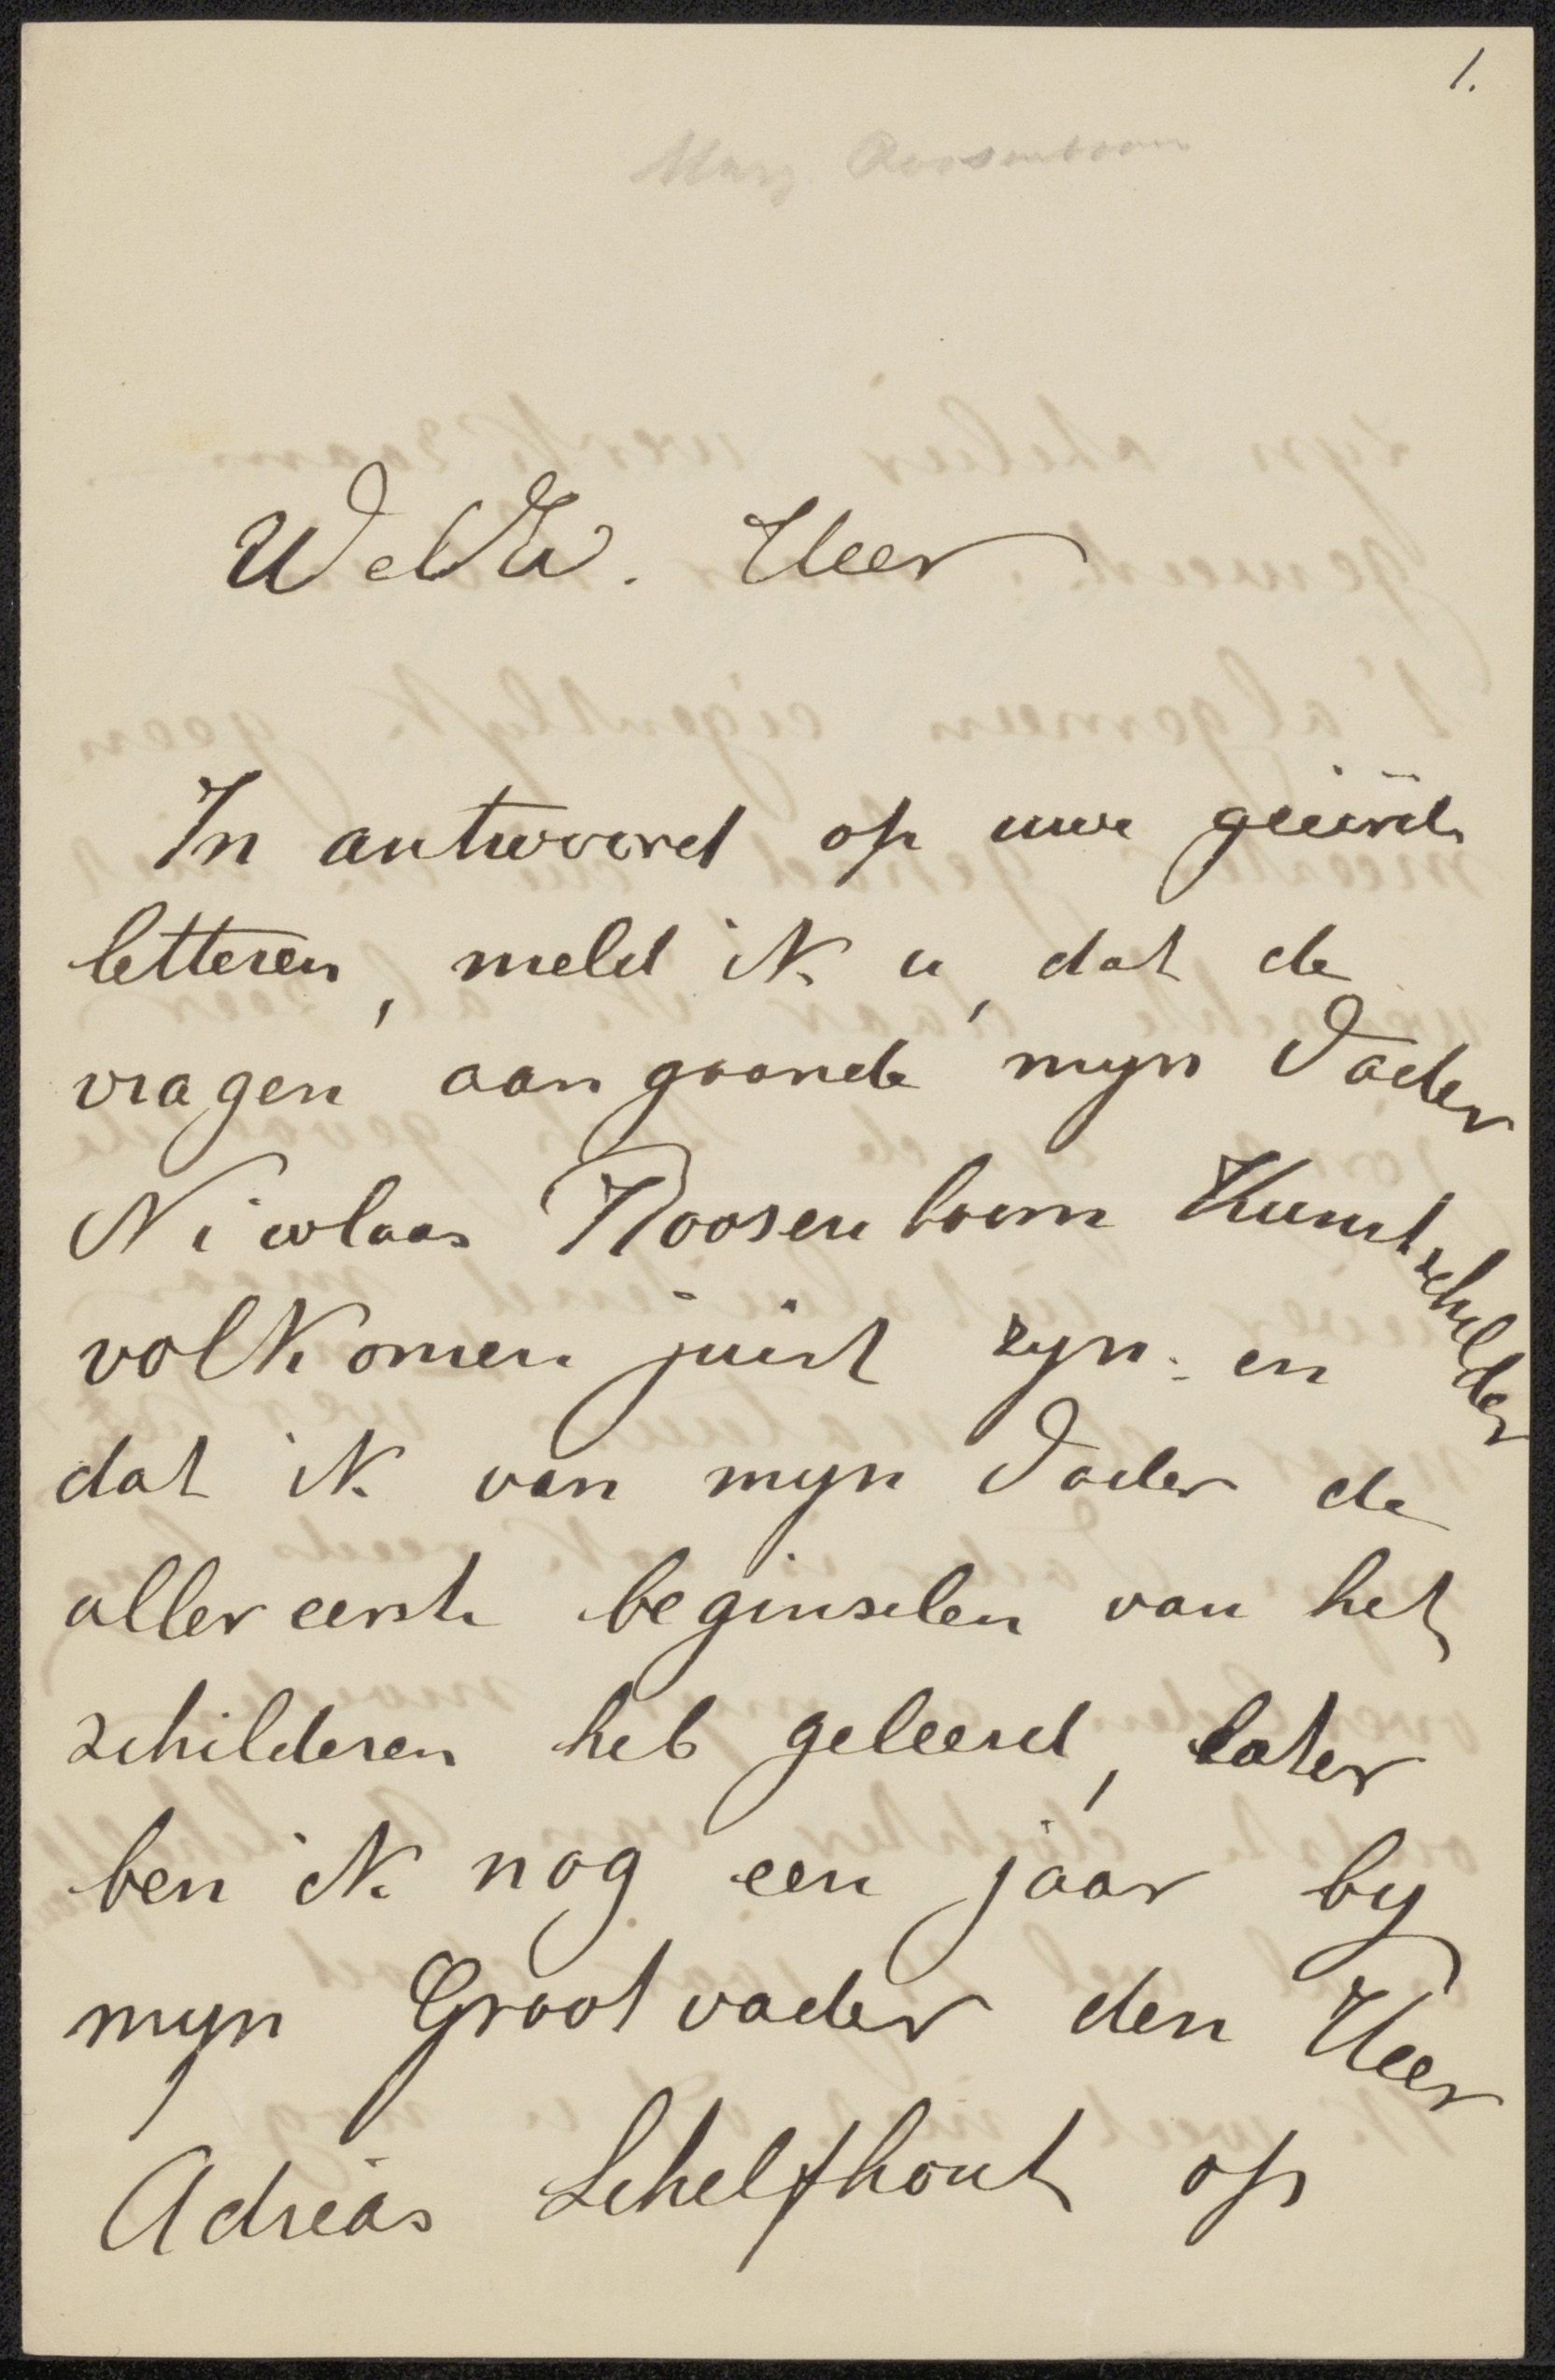 1.
Marg. Roosenboom
WelEd. Heer
In antwoord op uwe geëerde
letteren, meld ik u, dat de
vragen aangaande myn Vader
Nicolaas Roosenboom Kunstschilder
volkomen juist zyn. en
dat ik van myn Vader de
allereerste beginselen van het
schilderen heb geleerd, later
ben ik nog een jaar by
myn Grootvader den Heer
Adreas Schelfhout op